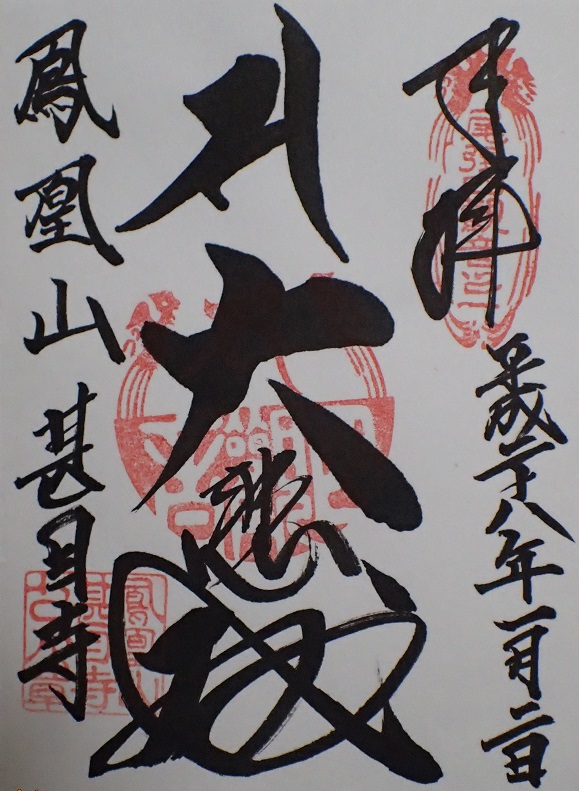 奉拝
平成二十八年一月二日
大悲殿
鳳凰山 甚目寺
鳳凰山
甚目寺